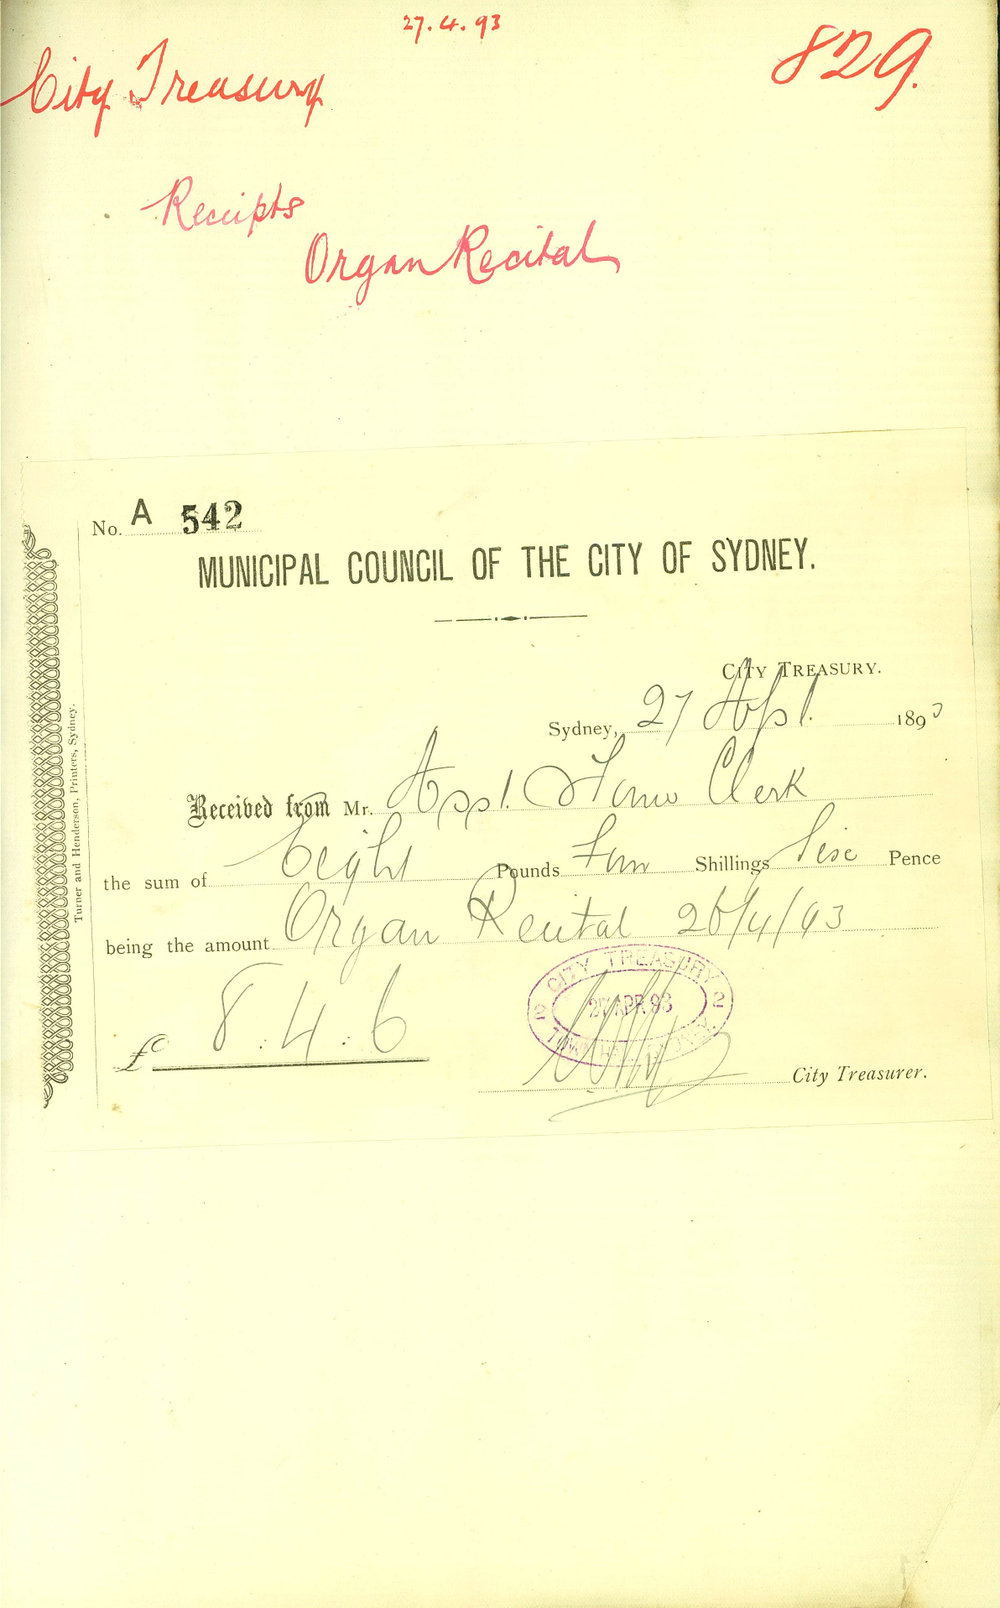 27.4.93
City Treasury
829.
Receipts
Organ Recital
No. A 542
MUNICIPAL COUNCIL OF THE CITY OF SYDNEY.
CITY TREASURY.
Sydney, 27 Apl. 1893
Received from Mr. Asst. Town Clerk
the sum of Eight Pounds Four Shillings Six Pence
being the amount Organ Recital 26/4/93
£ 8.4.6
CITY TREASURY
2 27 APR.93 2
TOWN HALL SYDNEY
City Treasurer.
Turner and Henderson, Printers, Sydney.